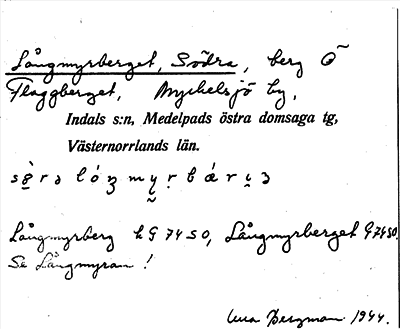 Långmyrberget, Södra, berg Ö
Flaggberget, Myckelsjö by,
Indals s:n, Medelpads östra domsaga tg,
Västernorrlands län.
Långmyrberg h G 74 SO, Långmyrberget G 74 SO.
Se Långmyran!
Bergman 1944.